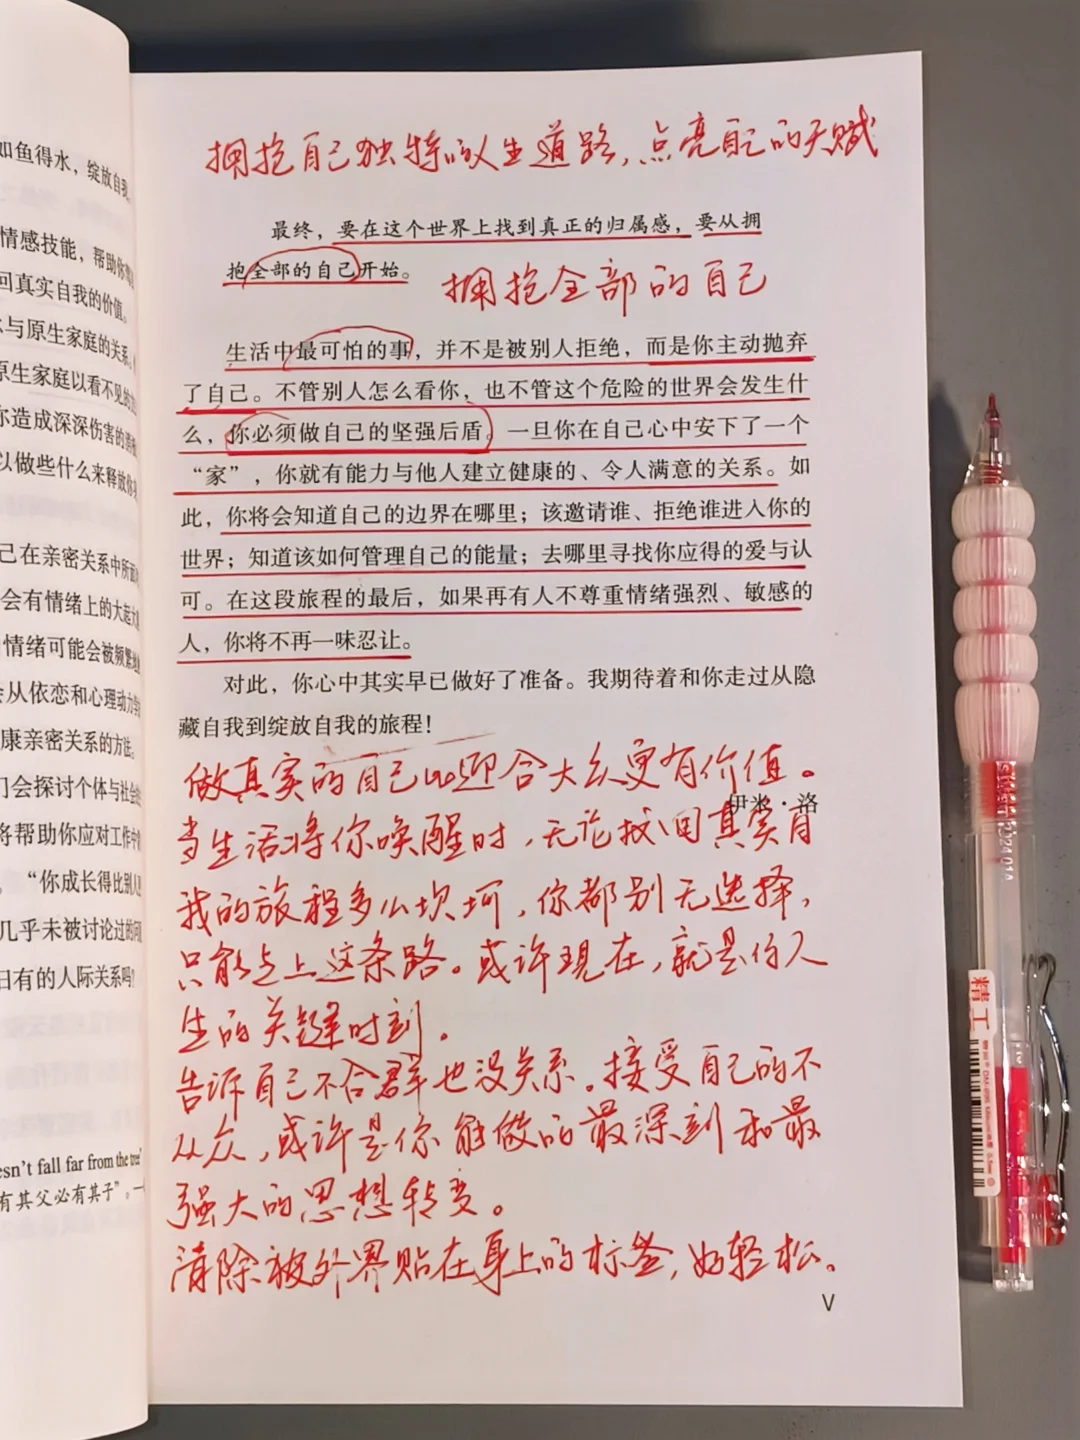 如鱼得水，绽放自我。
情感技能，帮助你
回真实自我的价值。
与原生家庭的关系。
原生家庭以看不见的
你造成深深伤害的
以做些什么来释放你
己在亲密关系中所面
会有情绪上的大起大
情绪可能会被频繁地
会从依恋和心理动力学
康亲密关系的方法。
们会探讨个体与社会的
将帮助你应对工作中
“你成长得比别人
几乎未被讨论过的问
日有的人际关系吗？
esn't fall far from the tree"
有其父必有其子”。
拥抱自己独特的人生道路，点亮自己的天赋
最终，要在这个世界上找到真正的归属感，要从拥
抱全部的自己开始。
拥抱全部的自己
生活中最可怕的事，并不是被别人拒绝，而是你主动抛弃
了自己。不管别人怎么看你，也不管这个危险的世界会发生什
么，你必须做自己的坚强后盾。一旦你在自己心中安下了一个
“家”，你就有能力与他人建立健康的、令人满意的关系。如
此，你将会知道自己的边界在哪里；该邀请谁、拒绝谁进入你的
世界；知道该如何管理自己的能量；去哪里寻找你应得的爱与认
可。在这段旅程的最后，如果再有人不尊重情绪强烈、敏感的
人，你将不再一味忍让。
对此，你心中其实早已做好了准备。我期待着和你走过从隐
藏自我到绽放自我的旅程！
做真实的自己比迎合大众更有价值。
伊米·洛
当生活将你唤醒时，无论找回真实自
我的旅程多么坎坷，你都别无选择，
只能走上这条路。或许现在，就是你人
生的关键时刻。
告诉自己不合群也没关系。接受自己的不
从众，或许是你能做的最深刻和最
强大的思想转变。
清除被外界贴在身上的标签，好轻松。
V
精工